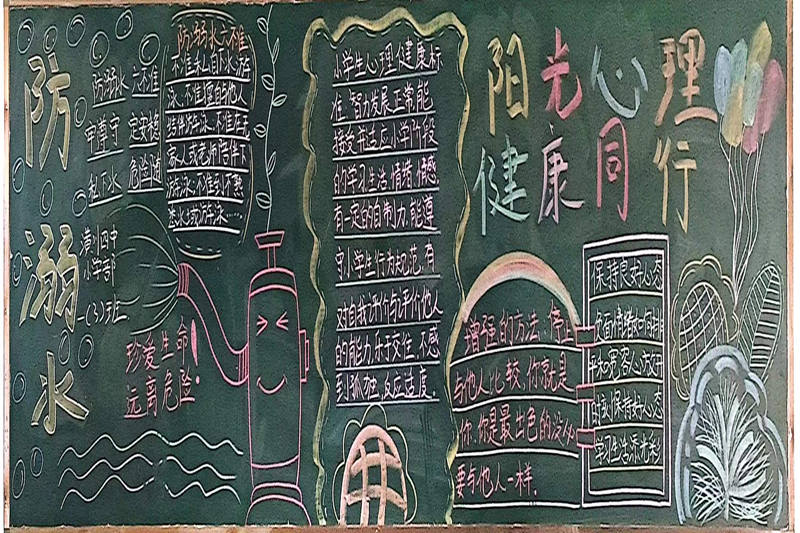 防溺水
防溺水 六不准
牢遵守 定安稳
私下水 危险随
潢川四中
小学部
一(3)班
防溺水六不准
不准私自下水游
泳.不准擅自他人
结伴游泳.不准在无
家人或老师陪伴下
游泳.不准到不熟
悉水域游泳……
珍爱生命!
远离危险!
小学生心理健康标
准.智力发展正常,能
接受并适应小学阶段
的学习生活.情绪.情感
有一定的自制力,能遵
守小学生行为规范.有
对自我评价与评价他人
的能力.乐于交往,不感
到孤独.反应适度.
阳光心理
健康同行
增强的方法.停止
与他人比较.你就是
你.你是最出色的没必
要与他人一样.
保持良好心态
平和宽容心
保持好心态
学习生活添光彩